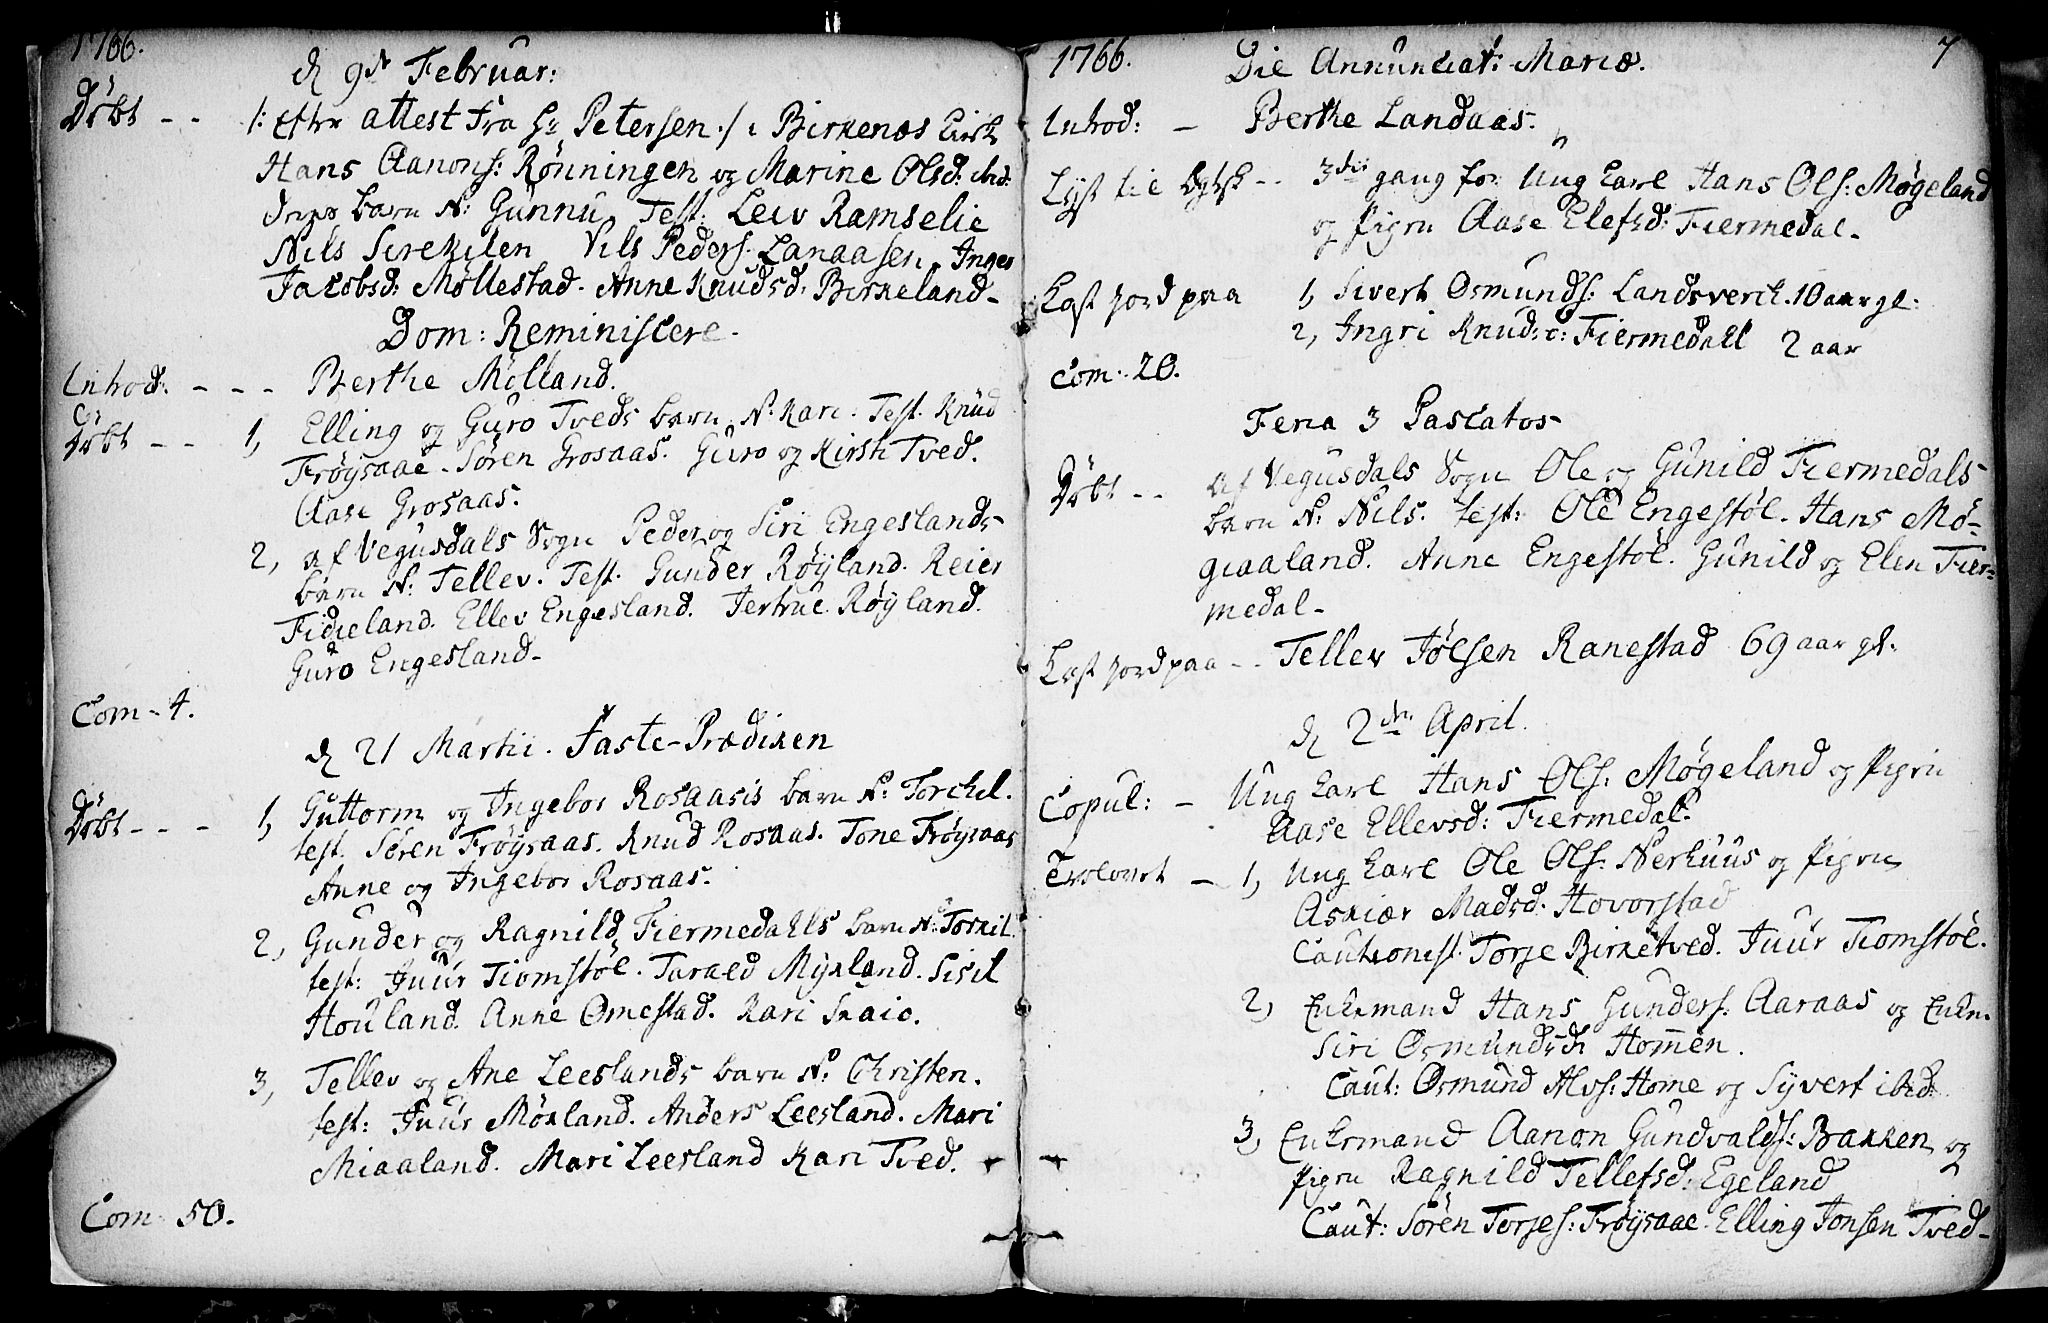 1766.
d 9de Februar:
Döbt -- /: Efter attest fra Hr Petersen ./ i Birkenæs Kirk
Hans Aanons: Rønningen og Marine Olsd: ibid:
barn N: Gunnu, Test: Leiv Ramselie
Nils Sirekilen Nils Peders. Lanaasen. Inger
Jacobsd: Møllestad. Anne Knudsd: Birkeland-
Dom: Reminiscere.
Introd: --- Berthe Mølland.
Döbt -- 1, Elling og Guro Tveds barn N: Kari. Test. Knud
Frøysaae. Søren Grosaas. Guro og Kirsti Tved.
Aase Grosaas.
2, af Vegusdals Sogn Peder og Siri Engeslands
barn N: Tellev. Test. Gunder Røyland. Reier
Fidieland. Ellev Engesland. Jertrue Røyland.
Guro Engesland-
Com - 4.
d 21 Martii. Faste-Prædiken
Döbt --- 1, Guttorm og Ingebor Rosaasis barn N: Torchel.
test. Søren Frøysaas. Knud Rosaas. Tone Frøysaas
Anne og Ingebor Rosaas.
2, Gunder og Ragnild Fiermedahls barn N: Torkil.
test: Juur Tiomstøl. Tarald Mykland. Sisil
Houland. Anne Omestad. Kari Skaie.
3, Tellev og Ane Leeslands barn N: Christen.
test: Juur Møkland. Anders Leesland. Mari
Miaaland. Mari Leesland Kari Tved.
Com. 50.
1766. Die Annunciat: Mariæ. 7
Introd: - Berthe Landaas.
Lyst til Egtsk -- 3die gang for Ung karl Hans Ols: Møgeland
og Pigen Aase Elefsd: Fiermedal-
Kast jord paa 1, Sivert Osmunds: Landsverck. 10 aar gl:
2, Ingri Knudsd: Fiermedall 2 aar
Com: 20.
Feria 3 Pascatos-
Döbt -- af Vegusdals Sogn Ole og Gunild Fiermedals
barn N: Nils. test: Ole Engestøl. Hans Mø-
giaaland. Anne Engestøl. Gunild og Elen Fier-
medal-
Kast jord paa -- Tellev Jølsen Ranestad 69 aar gl.
d 2den April.
Copul: - Ung karl Hans Ols: Møgeland og Pigen
Aase Ellevsd: Fiermedal.
Trolovet - 1, Ung karl Ole Ols: Nerhuus og Pigen
Askier Madsd. Hovorstad
Cautionist. Torje Birketved. Juur Tiomstøl.
2, Enkemand Hans Gunders. Aaraas og Enken
Siri Osmundsd: Hommen.
Caut: Osmund Alvs: Home og Syvert ibid:
3, Enkemand Aanon Gundvalds: Bakken og
Pigen Ragnild Tellefsd: Egeland
Caut: Søren Torjes: Frøysaae. Elling Jonsen Tved-